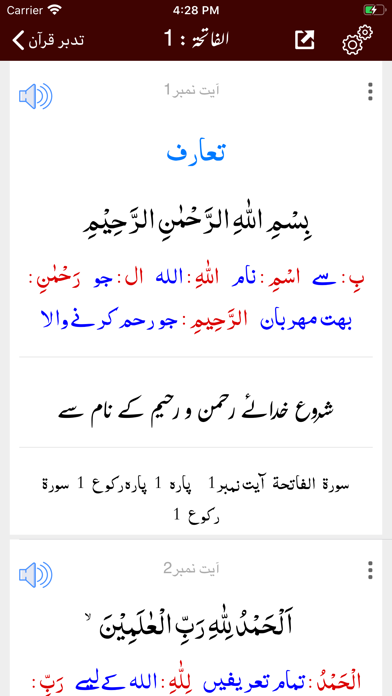 Carrier 4:28 PM
تدبر قرآن الفاتحة : 1
آیت نمبر1
تعارف
بِسْمِ اللّٰهِ الرَّحْمٰنِ الرَّحِيْمِ
بِ: سے اسْمِ: نام اللّٰهِ: الله ال: جو رَحْمٰنِ:
بهت مهربان الرَّحِيمِ: جو رحم کرنے والا
شروع خدائے رحمن و رحیم کے نام سے
سورة الفاتحة آیت نمبر1 پاره 1 پاره رکوع 1 سورة
رکوع 1
آیت نمبر2
اَلْحَمْدُ لِلّٰهِ رَبِّ الْعٰلَمِيْنَ ۙ
الْحَمْدُ: تمام تعریفیں لِلّٰهِ: الله کے لیے رَبِّ: